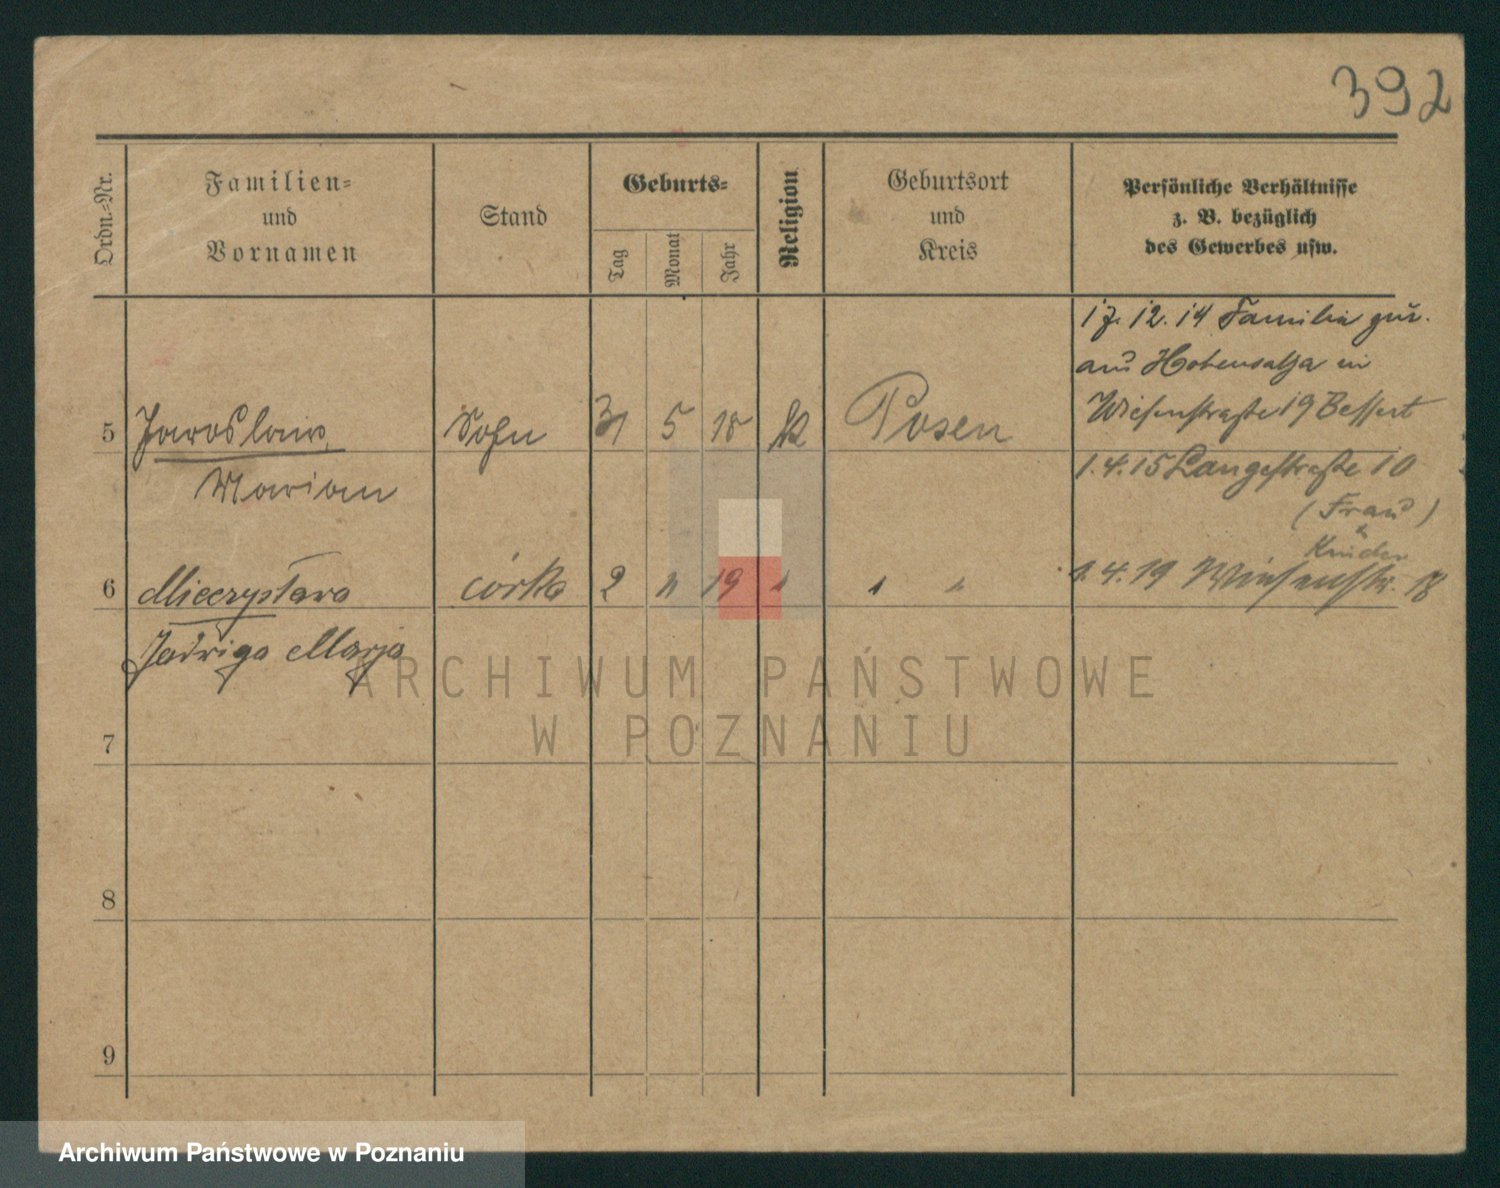 392
Ordn.=Nr.
Familien=
und
Vornamen
Stand
Geburts=
Tag
Monat
Jahr
Religion
Geburtsort
und
Kreis
Persönliche Verhältnisse
z. B. bezüglich
des Gewerbes usw.
17. 12. 14 Familie zur.
aus Hohensalza in
Wiesenstraße 19 Bessert
5 Jaroslaw Sohn 31 5 18 k Posen
1.4.15 Langestraße 10
Marian
(Frau
Kinder)
6 Mieczysława córka 2 11 19 " " " 1.4.19 Wiesenstr. 18
Jadwiga Marja
ARCHIWUM PAŃSTWOWE
W POZNANIU
7
8
9
Archiwum Państwowe w Poznaniu